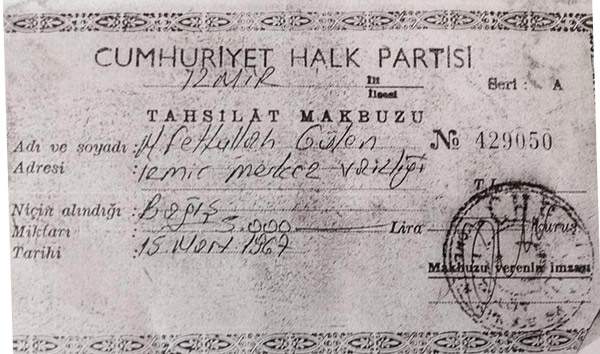 CUMHURİYET HALK PARTİSİ
İZMİR İli
İlçesi
Seri : A
TAHSİLÂT MAKBUZU
Adı ve soyadı : M Fethullah Gülen № 429050
Adresi : izmir merkez vaizliği
T.L.
Niçin alındığı : Bağış
Miktarı : 5.000 Lira Kuruş
Tarihi : 15 Mart 1967
Makbuzu verenin imzası
CHP